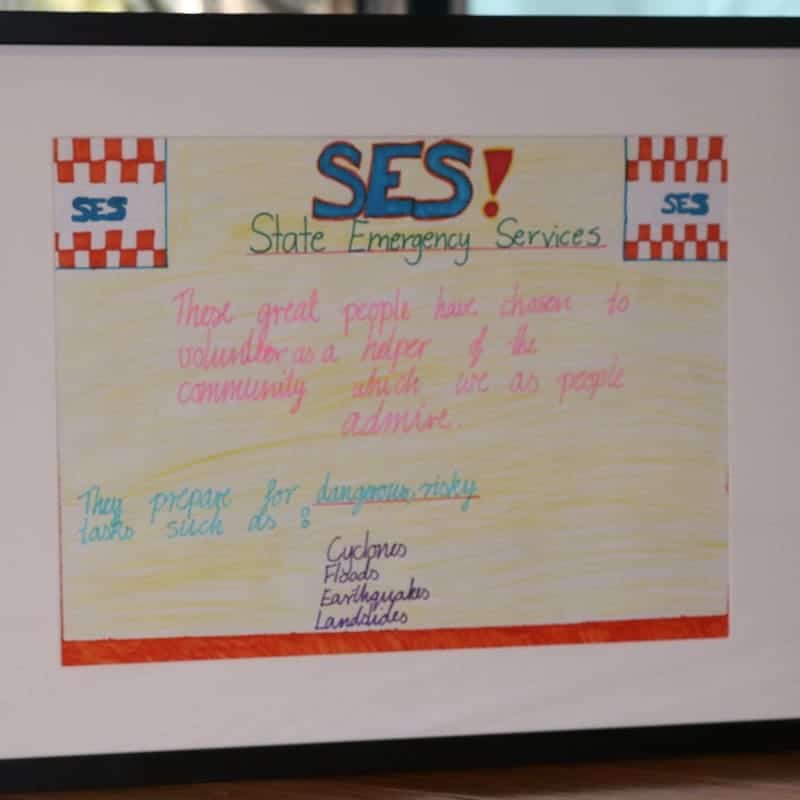 SES!
SES
SES
State Emergency Services
These great people have chosen to
volunteer as a helper of the
community which we as people
admire.
They prepare for dangerous, risky
tasks such as :
Cyclones
Floods
Earthquakes
Landslides